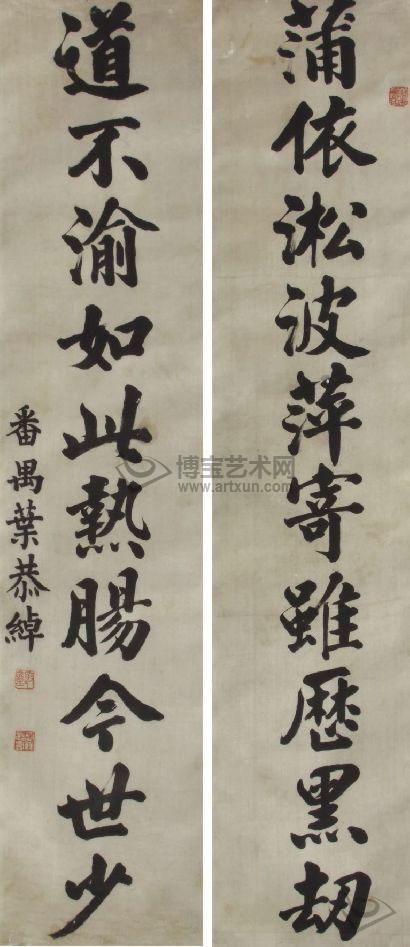 蒲依淞波萍寄雖歷黑劫
道不渝如此熱腸今世少
番禺葉恭綽
博宝艺术网
www.artxun.com